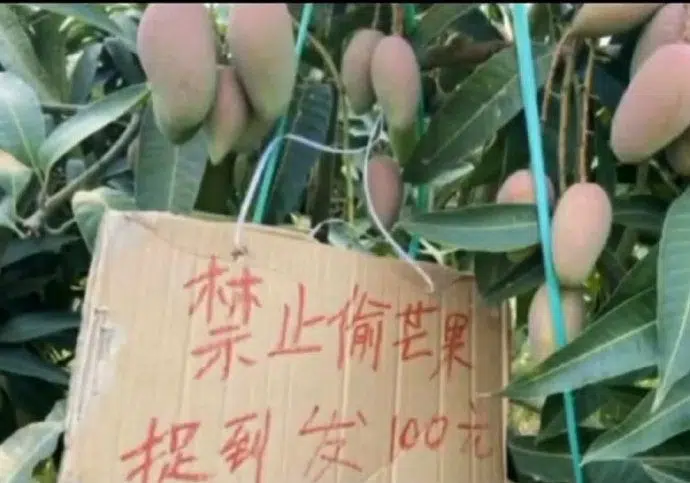 禁止偷芒果
捉到发100元